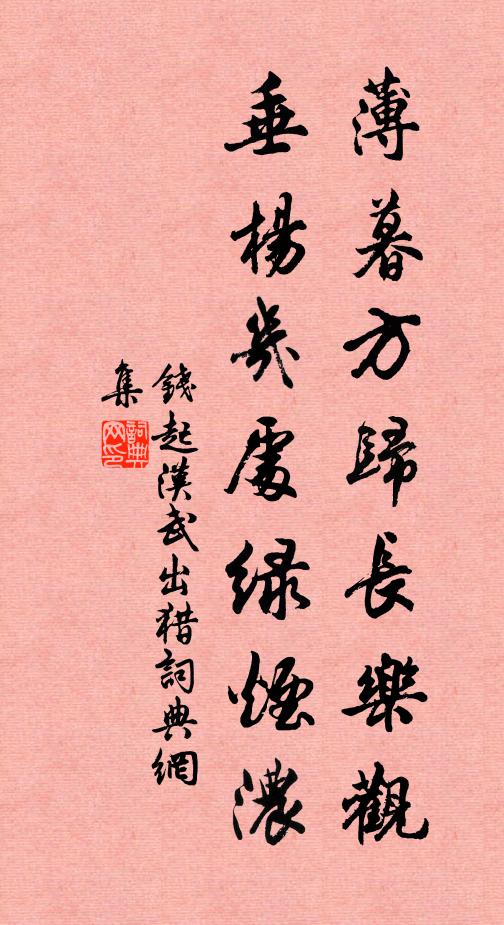 薄暮方歸長樂觀
垂楊幾處綠煙濃
錢起漢武出猎詞典網
集
詞典
网印